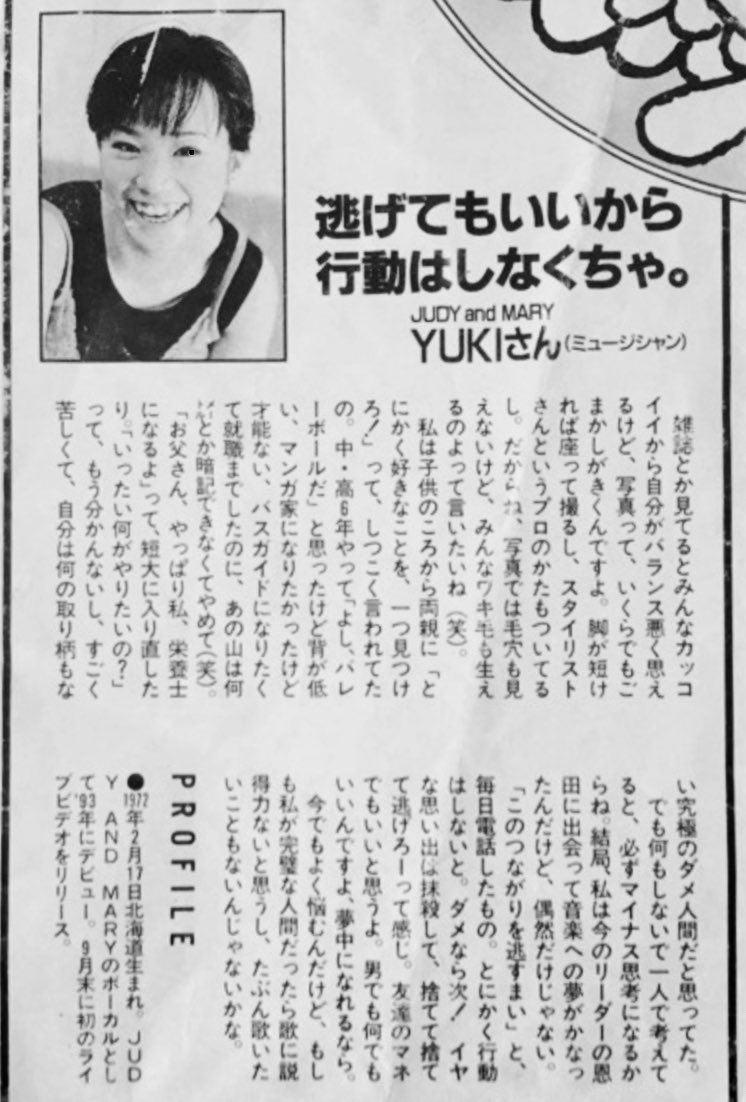 逃げてもいいから
行動はしなくちゃ。
JUDY and MARY
YUKIさん(ミュージシャン)
雑誌とか見てるとみんなカッコ
イイから自分がバランス悪く思え
るけど、写真って、いくらでもご
まかしがきくんですよ。脚が短け
れば座って撮るし、スタイリスト
さんというプロのかたもついてる
し。だからね、写真では毛穴も見
えないけど、みんなワキ毛も生え
るのよって言いたいね(笑)。
私は子供のころから両親に「と
にかく好きなことを、一つ見つけ
ろ!」って、しつこく言われてた
の。中・高6年やって「よし、バレ
ーボールだ」と思ったけど背が低
い、マンガ家になりたかったけど
才能ない、バスガイドになりたく
て就職までしたのに、あの山は何
とか暗記できなくてやめて(笑)。
「お父さん、やっぱり私、栄養士
になるよ」って、短大に入り直した
り。「いったい何がやりたいの?」
って、もう分かんないし、すごく
苦しくて、自分は何の取り柄もな
い究極のダメ人間だと思ってた。
でも何もしないで一人で考えて
ると、必ずマイナス思考になるか
らね。結局、私は今のリーダーの恩
田に出会って音楽への夢がかなっ
たんだけど、偶然だけじゃない。
「このつながりを逃すまい」と、
毎日電話したもの。とにかく行動
はしないと。ダメなら次! イヤ
な思い出は抹殺して、捨てて捨て
て逃げろーって感じ。友達のマネ
でもいいと思うよ。男でも何でも
いいんですよ、夢中になれるなら。
今でもよく悩むんだけど、もし
も私が完璧な人間だったら歌に説
得力ないと思うし、たぶん歌いた
いこともないんじゃないかな。
PROFILE
●1972年2月17日北海道生まれ。JUD
Y AND MARYのボーカルとし
て'93年にデビュー。9月末に初のライ
ブビデオをリリース。